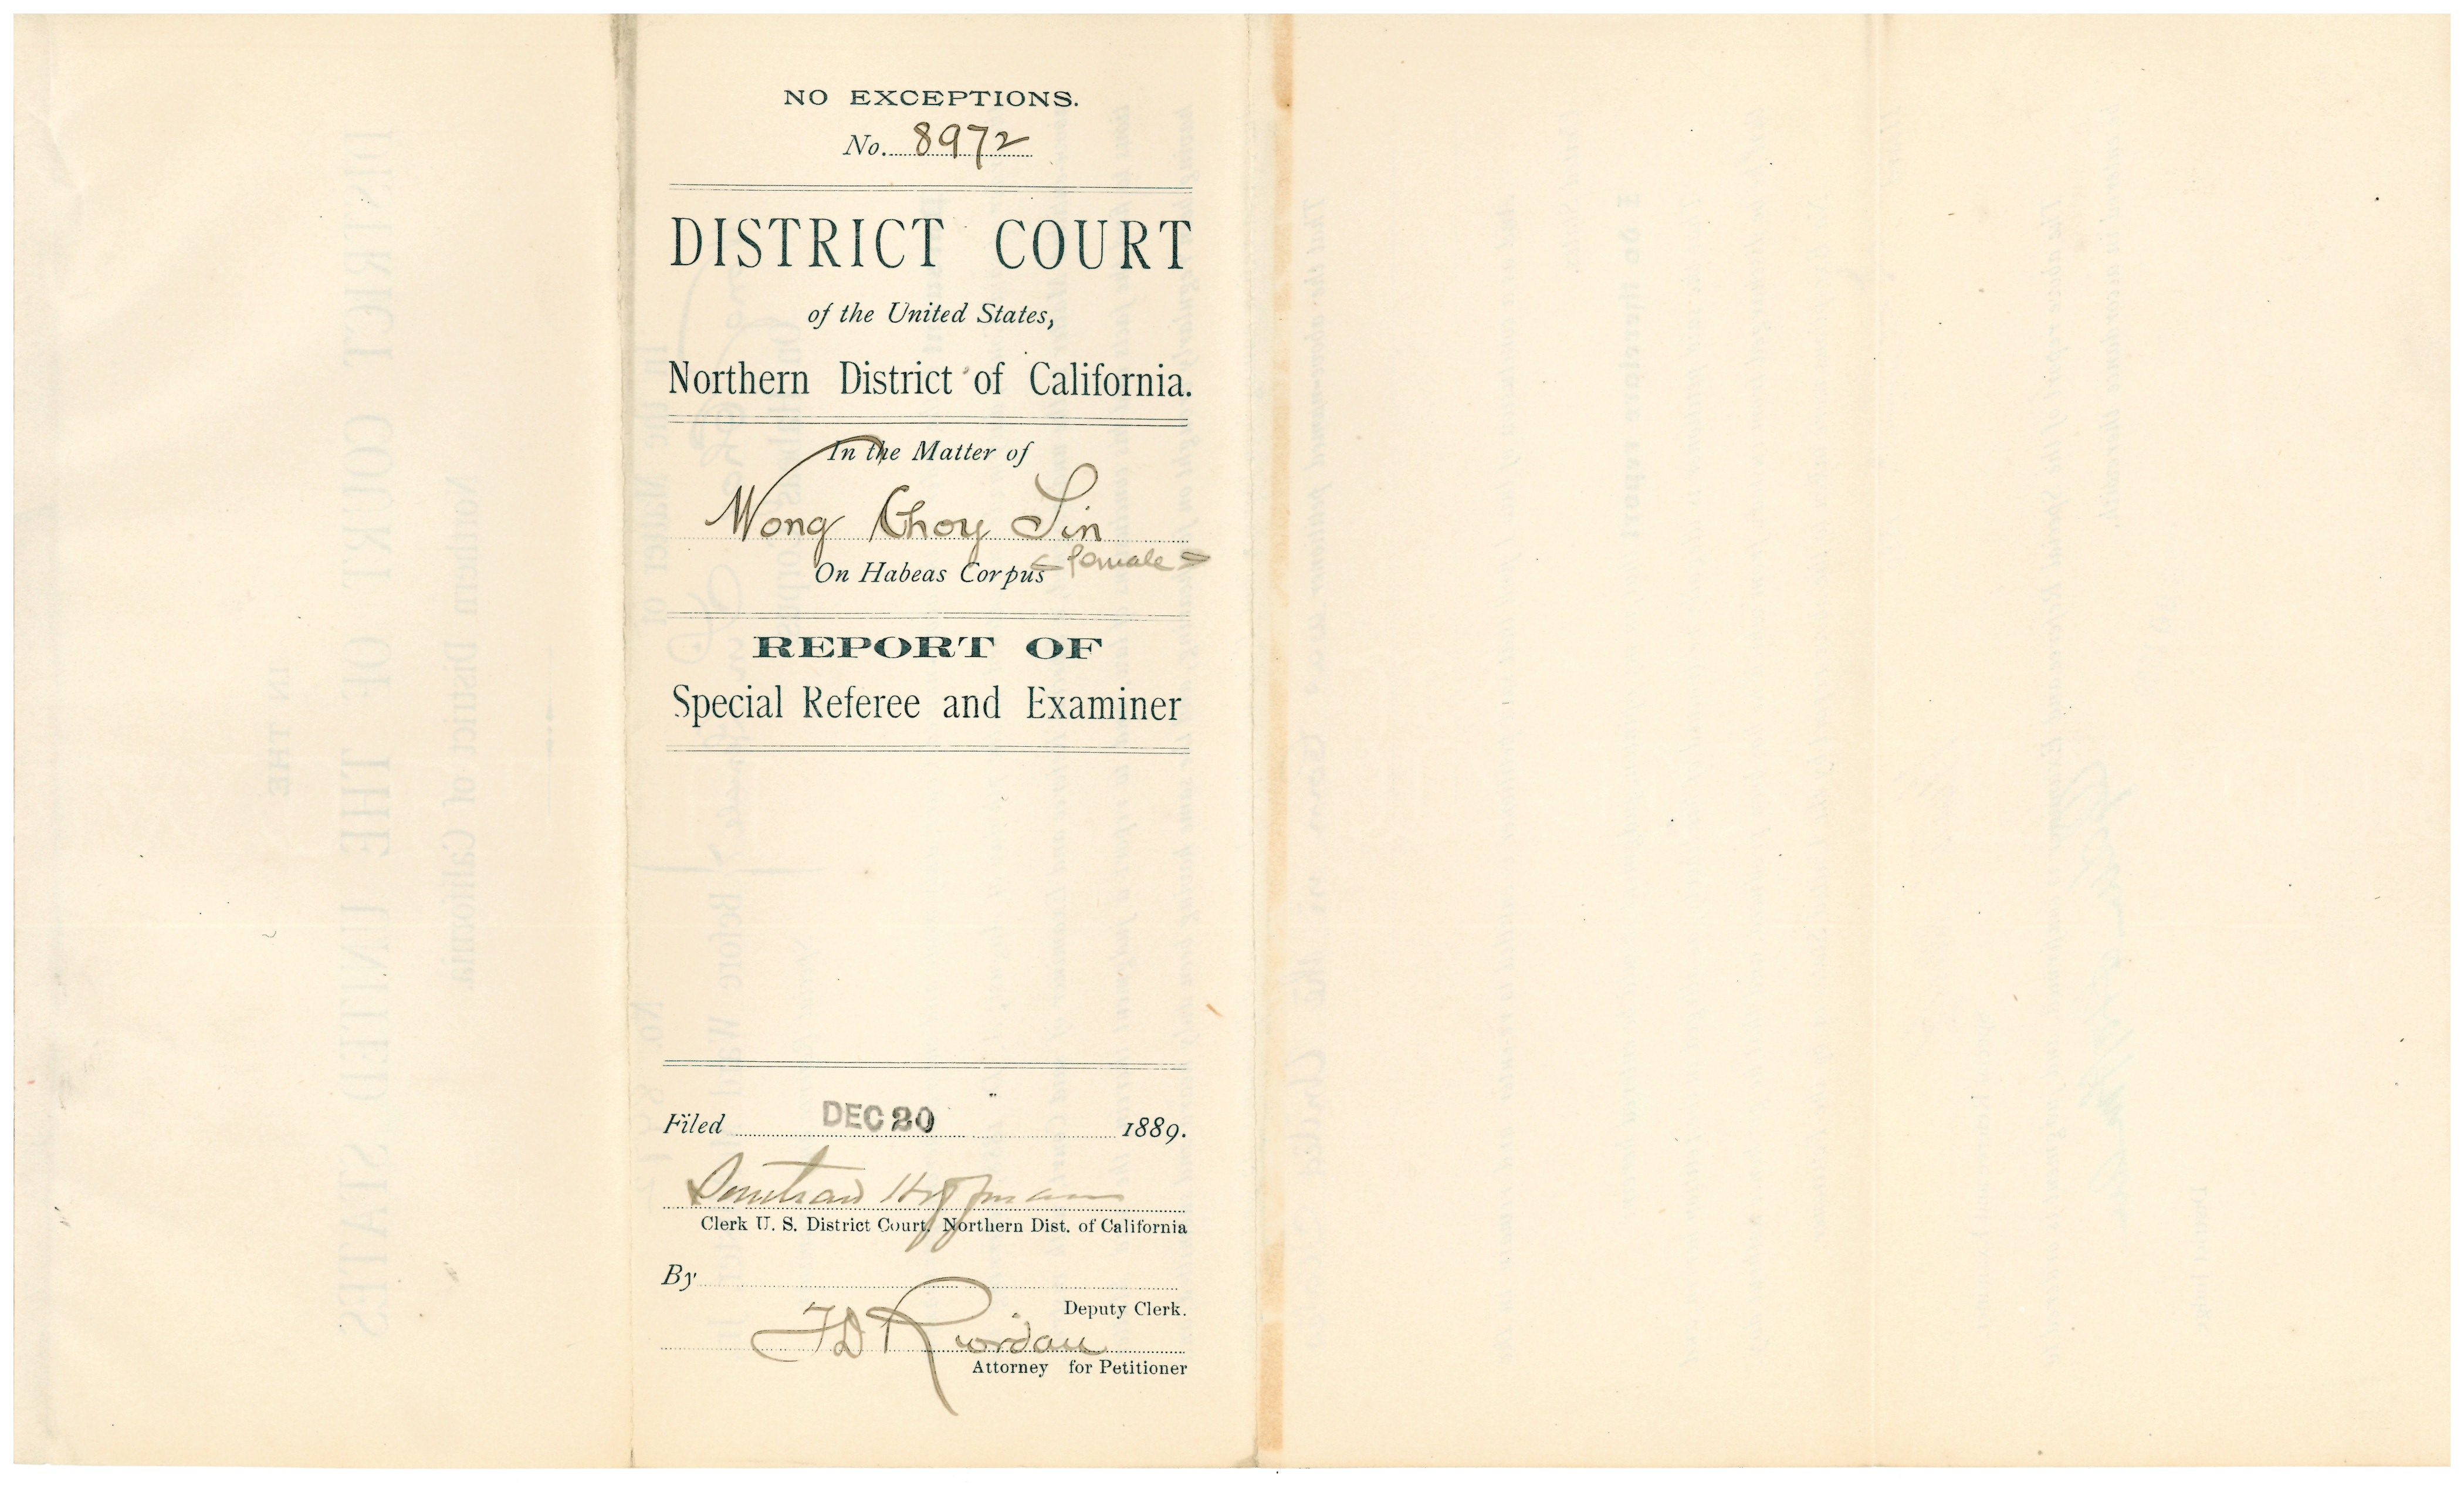 NO EXCEPTIONS.
No. 8972
DISTRICT COURT
of the United States,
Northern District of California.
In the Matter of
Wong Choy Sin
(female)
On Habeas Corpus
REPORT OF
Special Referee and Examiner
Filed DEC 20 1889.
Southard Hoffman
Clerk U. S. District Court, Northern Dist. of California
By
Deputy Clerk.
T D Riordan
Attorney for Petitioner